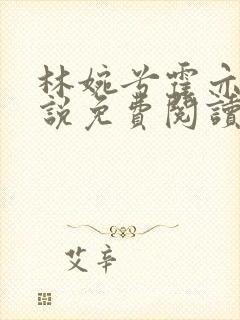 林婉兮霍亦
說免費閱讀
艾辛